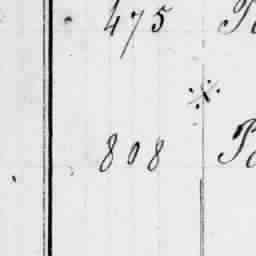 475
※
808